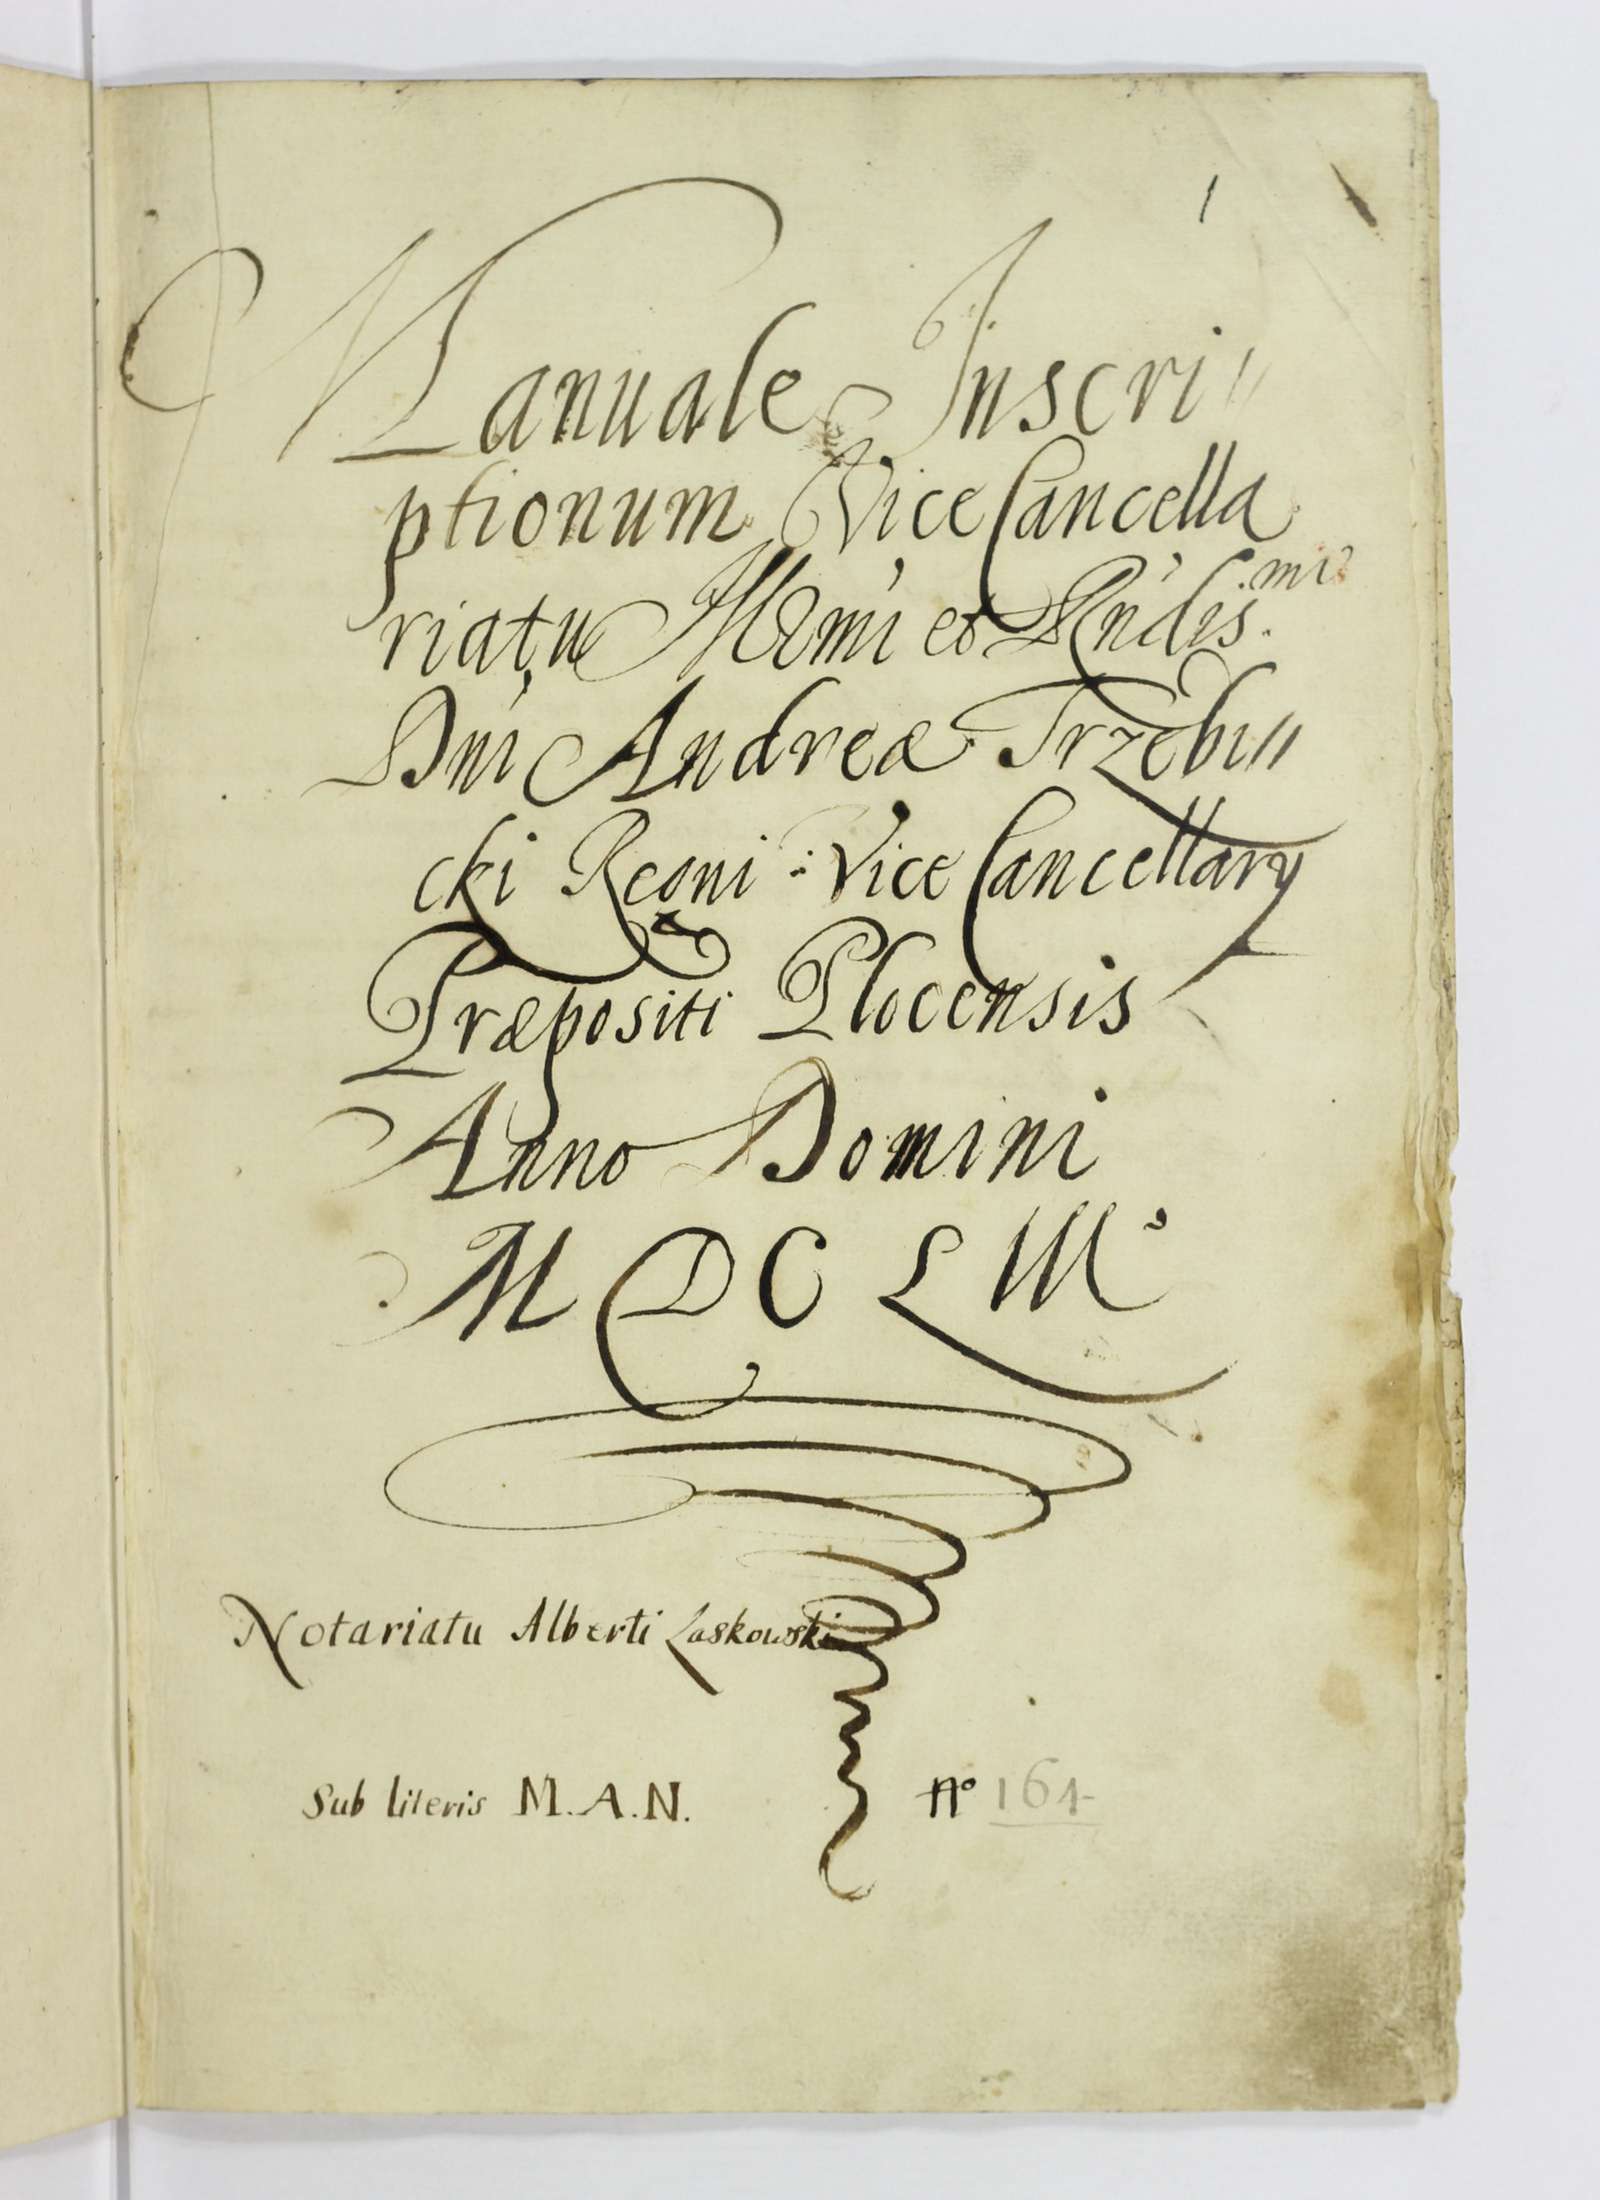 1
Manuale Inscri〃
ptionum Vice Cancella
riatu Illmi et Rndis.mi
Dni Andreæ Trzebi〃
cki Regni : Vice Cancellary
Præpositi Plocensis
Anno Domini
M DC LIII
Notariatu Alberti Laskowski
Sub literis M.A.N. No 164